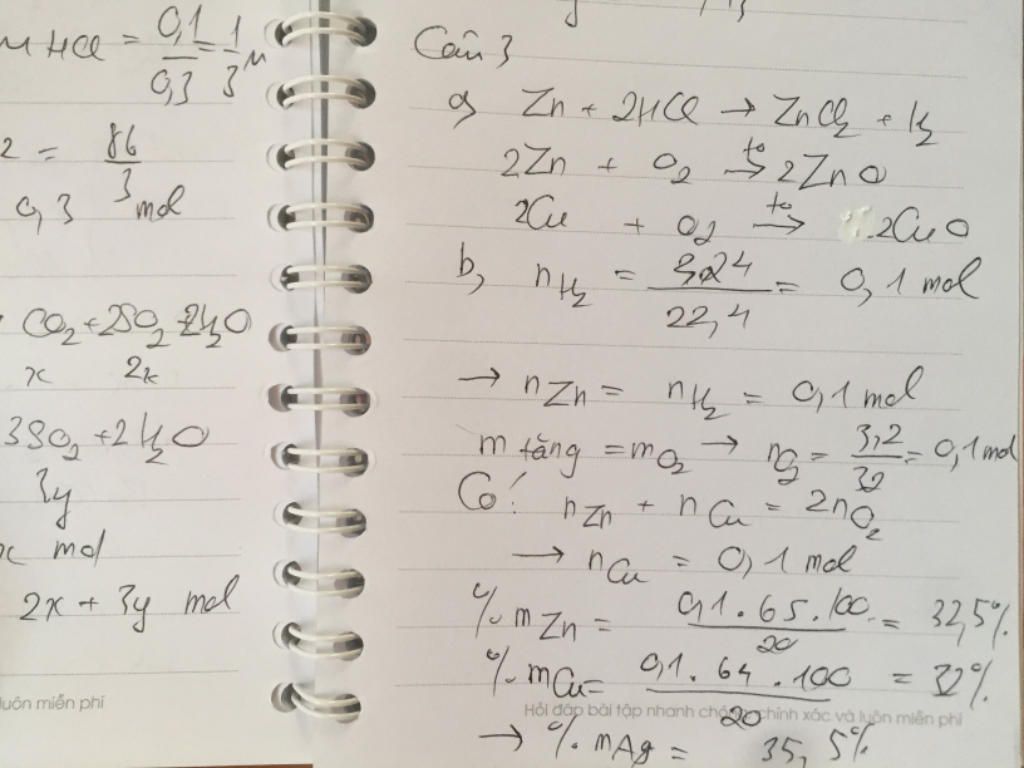 M HCl = 0,1/0,3 = 1/3 M
2 = 86/3 mol
0,3
CO2 + 2SO2 + 2H2O
x 2x
3SO2 + 2H2O
3y
x mol
2x + 3y mol
luôn miễn phí
Câu 3
a, Zn + 2HCl → ZnCl2 + H2
2Zn + O2 →to 2ZnO
2Cu + O2 →to 2CuO
b, nH2 = 2,24/22,4 = 0,1 mol
→ nZn = nH2 = 0,1 mol
m tăng = mO2 → nO2 = 3,2/32 = 0,1 mol
Có: nZn + nCu = 2nO2
→ nCu = 0,1 mol
% mZn = 0,1.65.100/20 = 32,5%
% mCu = 0,1.64.100/20 = 32%
Hỏi đáp bài tập nhanh chóng, chính xác và luôn miễn phí
→ %mAg = 35,5%